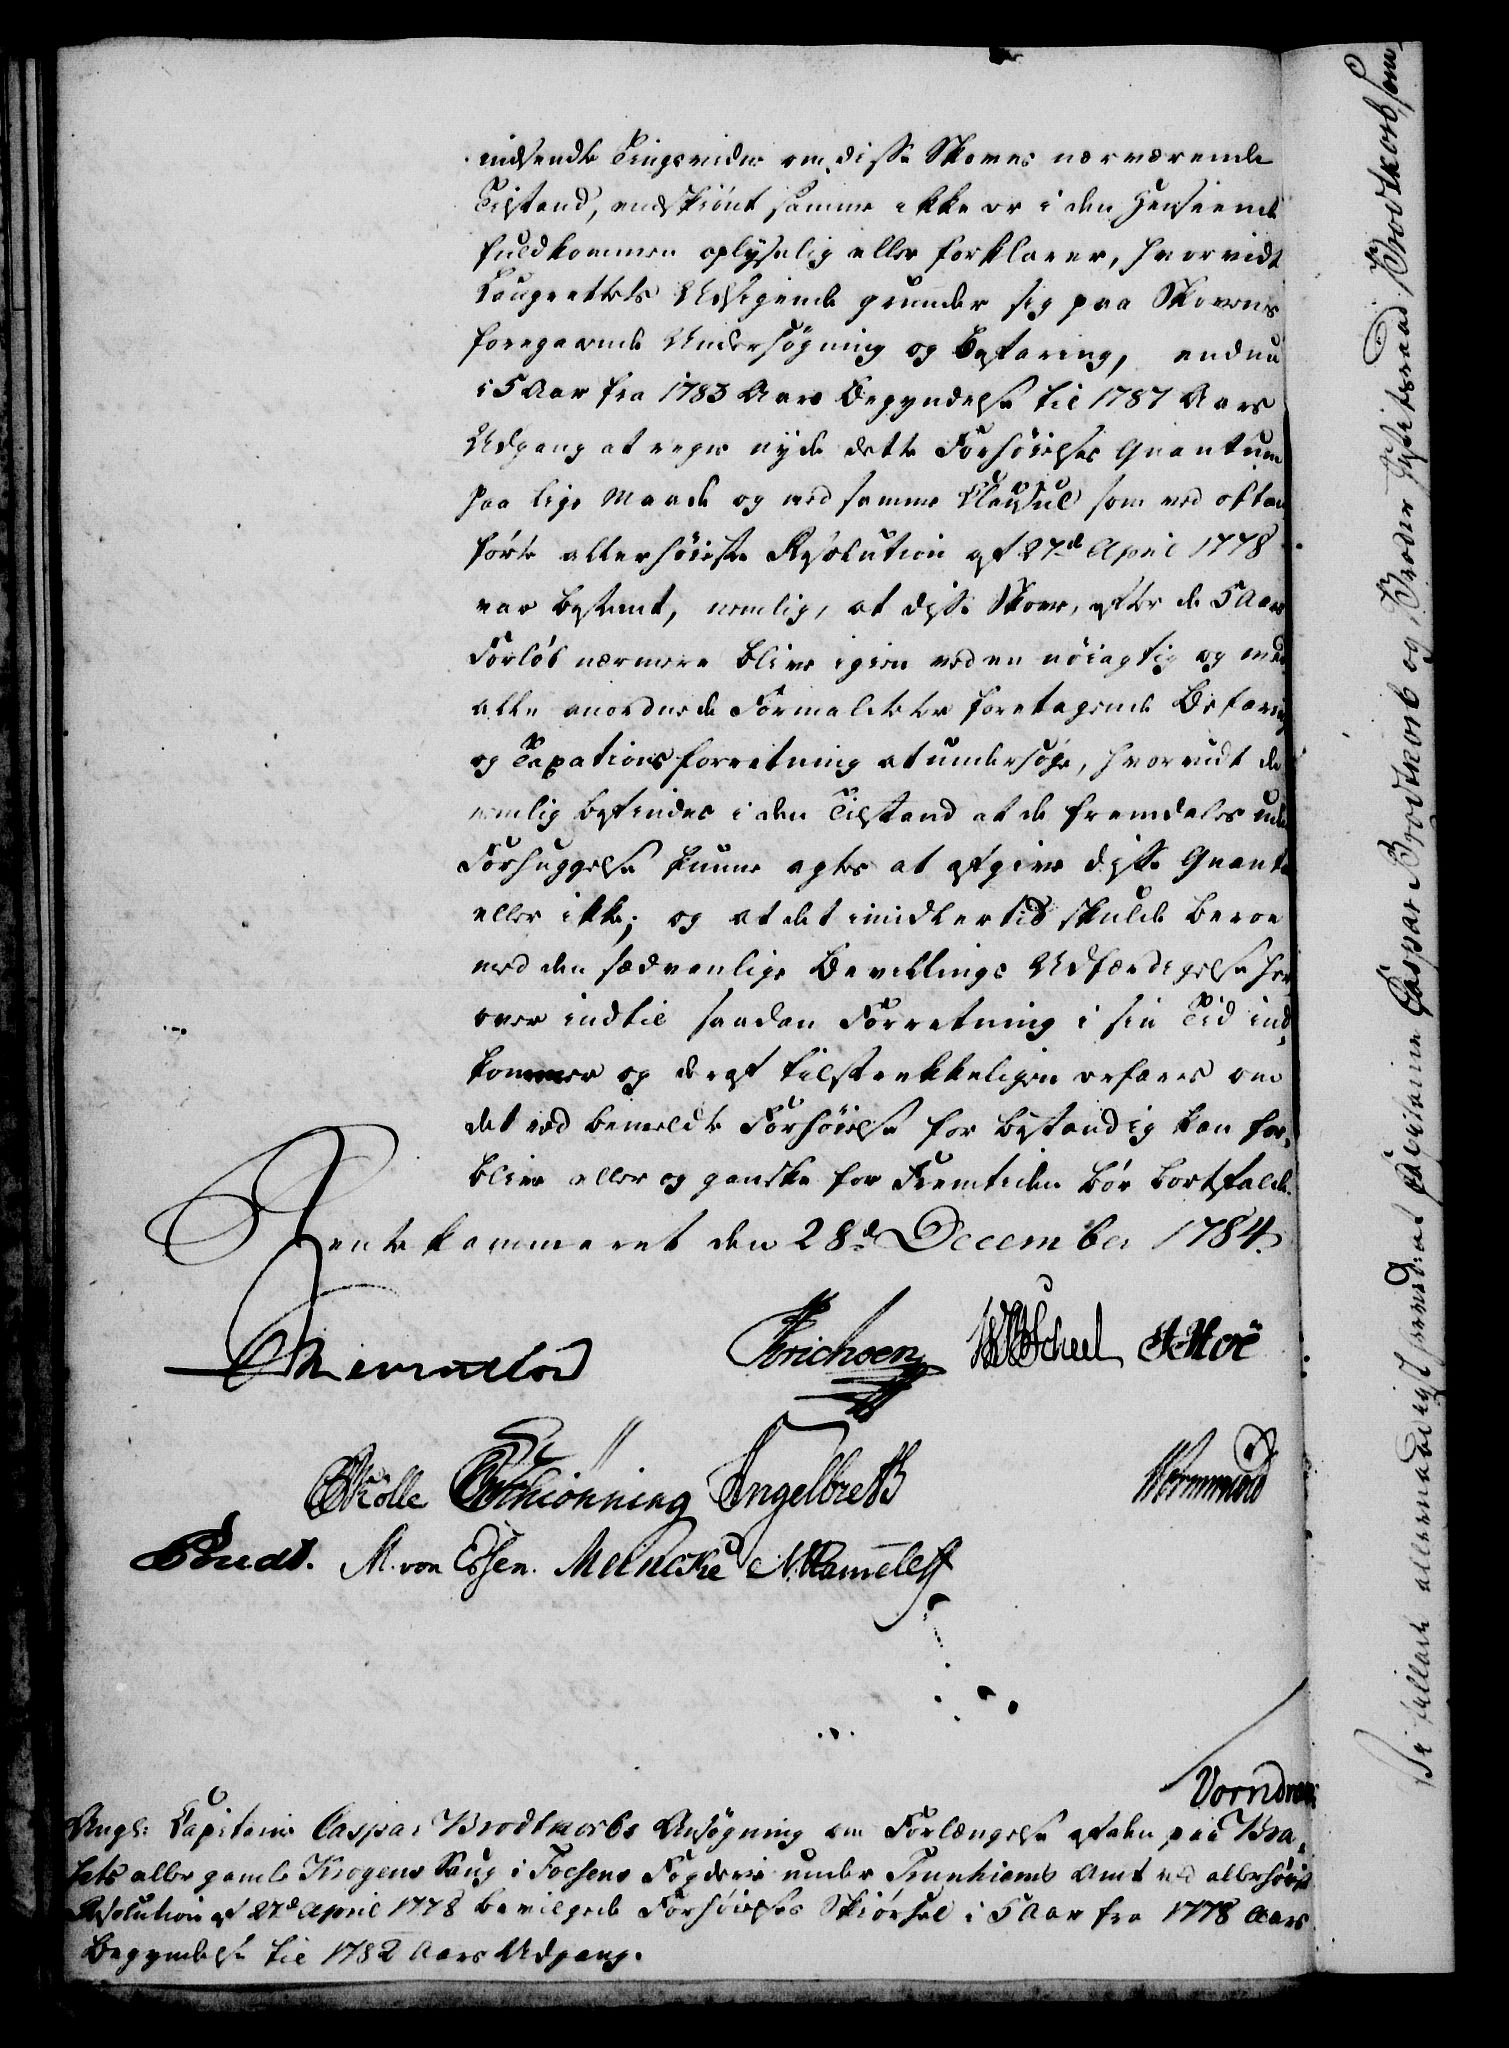 indsendte Tingsvidne om disse Skoves nærværende
Tilstand, endskiønt samme ikke er i den Henseende
fuldkommen oplyselig eller forklarer, hvorvidt
Laugrettets Udsigende grunder sig paa Skovens
foregaaende Undersøgning og Befaring, endnu
i 5 Aar fra 1783 Aars Begyndelse til 1787 Aars
Udgang at nyde dette Forhøielses Quantum
paa lige Maade og med samme Clausul som ved oftan
førte allerhøieste Resolution af 27de April 1778
var bestemt, nemlig, at disse Skove, efter de 5 Aars
Forløb nærmere blive igien ved en nøiagtig og med
alle anordnede Formaliteter foretagende Befaring
og Taxations forretning at undersøge, hvorvidt de
nemlig befindes i den Tilstand at de fremdeles uden
Forhuggelse kunne agtes at afgive disse Quanta
eller ikke; og at det imidlertid skulde beroe
med den sædvanlige Bevillings Udfærdigelse her
over indtil saadan Forretning i sin Tid ind
kommer og deraf tilstrekkeligen erfares om
det ved bemeldte Forhøielse for bestandig kan for
blive eller og ganske for Fremtiden bør bortfalde.
Rentekammeret den 28de December 1784.
Erichsen WScheel Hoë
Colle Schiønning Engelbreth Wormskiold
Bendt. M. von Essen. Meincke N. Rameleff
Vorndran
Angl: Capitaine Caspar Brodtkorbs Ansøgning om Forlængelse af den paa Bra
kets eller gamle Krogens Saug i Fosens Fogderie under Trunhiems Amt ved allerhøist
Resolution af 27de April 1778 bevilgede Forhøielses Skiørsel i 5 Aar fra 1778 Aars
Begyndelse til 1782 Aars Udgang.
allernaadigst Capitaine Caspar Brodtkorb og Broder Justitsraad Brodtkorb som